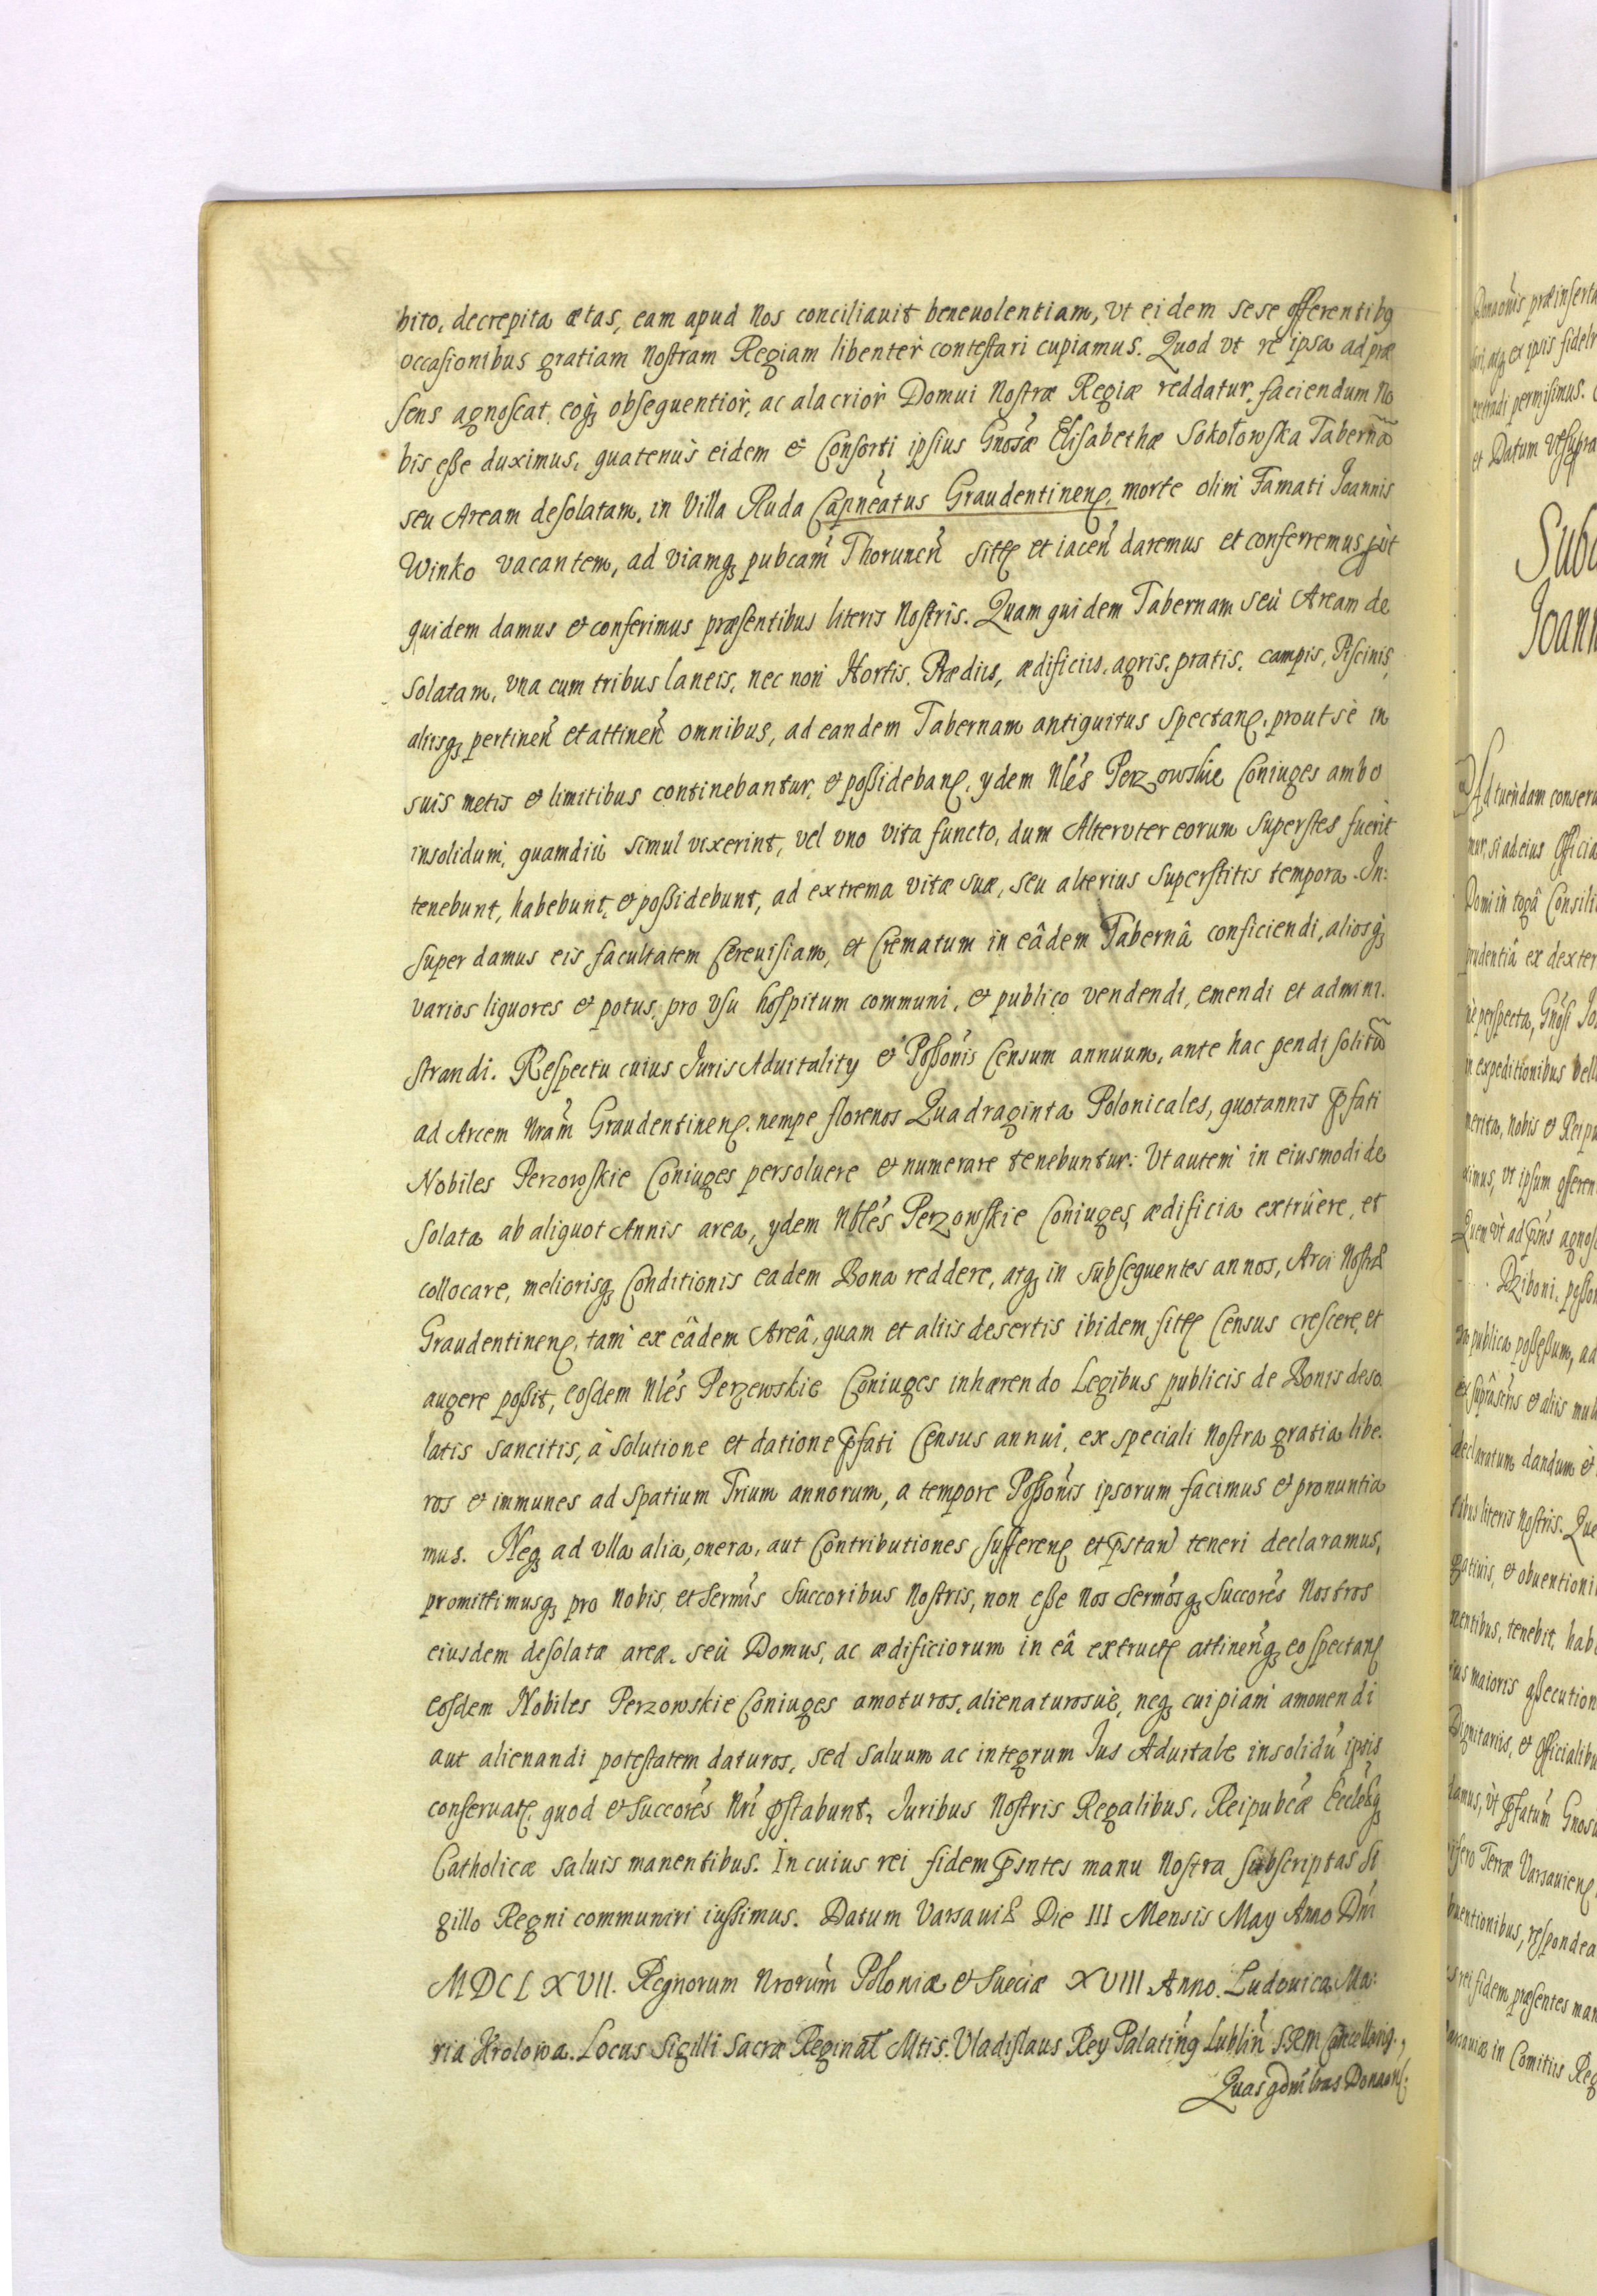 bito, decrepita ætas, eam apud Nos conciliauit beneuolentiam, vt eidem sese offerentibq
occasionibus gratiam Nostram Regiam libenter contestari cupiamus. Quod vt re ipsa ad præ
sens agnoscat, eoq; obsequentior, ac alacrior Domui Nostræ Regiæ reddatur, faciendum No
bis eße duximus, quatenus eidem et Consorti ipsius Gnosæ Elisabethæ Sokołowska Tabernã
seu Aream desolatam, in Villa Ruda Capneatus Graudentinen, morte olim Famati Joannis
Winko vacantem, ad viamq; pubcam Thorunen sitæ et iacen daremus et conferremus, put
quidem damus et conferimus præsentibus literis Nostris. Quam quidem Tabernam seu Aream de
solatam, vna cum tribus laneis, nec non Hortis, Prædiis, ædificiis, agris, pratis, campis, Piscinis,
aliisq; pertinen et attinen omnibus, ad eandem Tabernam antiquitus Spectan, prout se in
suis metis et limitibus continebantur, et poßideban, ydem Nles Perzowskie Coniuges ambo
insolidum, quamdiu simul vixerint, vel vno vita functo, dum Alteruter eorum Superstes fuerit
tenebunt, habebunt, et poßidebunt, ad extrema vitæ suæ, seu alterius Superstitis tempora. In:
super damus eis facultatem Cereuisiam, et Crematum in eâdem Tabernâ conficiendi, aliosq;
varios liquores et potus, pro vsu hospitum communi, et publico vendendi, emendi et admini.
strandi. Respectu cuius Juris Aduitality et Poßonis Censum annuum, ante hac pendi solitũ
ad Arcem Nram Graudentinen, nempe florenos Quadraginta Polonicales, quotannis pfati
Nobiles Perzowskie Coniuges persoluere et numerare tenebuntur. Vt autem in eiusmodi de
solata ab aliquot Annis area, ydem Nbles Perzowskie Coniuges ædificia extruere, et
collocare, meliorisq; Conditionis eadem Bona reddere, atq; in subsequentes annos, Arci Nostræ
Graudentinen, tam ex eâdem Areâ, quam et aliis desertis ibidem sitæ Census crescere, et
augere poßit, eosdem Nles Perzewskie Coniuges inhærendo Legibus publicis de Bonis deso.
latis sancitis, a solutione et datione pfati Census annui, ex speciali Nostra gratia libe.
ros et immunes ad Spatium Trium annorum, a tempore Poßonis ipsorum facimus et pronuntia
mus. Neq; ad vlla alia, onera, aut Contributiones sufferen et pstan teneri declaramus,
promittimusq; pro Nobis, et Sermis Succoribus Nostris, non eße Nos Sermosq; Succores Nostros
eiusdem desolatæ areæ, seu Domus, ac ædificiorum in eâ extructæ attinenq; eo spectan
eosdem Nobiles Perzowskie Coniuges amoturos, alienaturosue, neq; cuipiam amouendi
aut alienandi potestatem daturos, sed saluum ac integrum Jus Aduitale insolidũ ipsis
conseruat, quod et Succores Nri pstabunt, Juribus Nostris Regalibus, Reipubcæ Ecclesq;
Catholicæ saluis manentibus. In cuius rei fidem psntes manu Nostra subscriptas Si
gillo Regni communiri iußimus. Datum Varsauiæ Die III Mensis May Anno Dni
MDCLXVII. Regnorum Nrorum Poloniæ et Sueciæ XVIII Anno. Ludouica Ma:
ria Krolowa. Locus Sigilli Sacræ Reginal Mtis. Vladislaus Rey Palatinq Lublin S.R.M Cancellarig.,
Quas qdm lras Donaon: